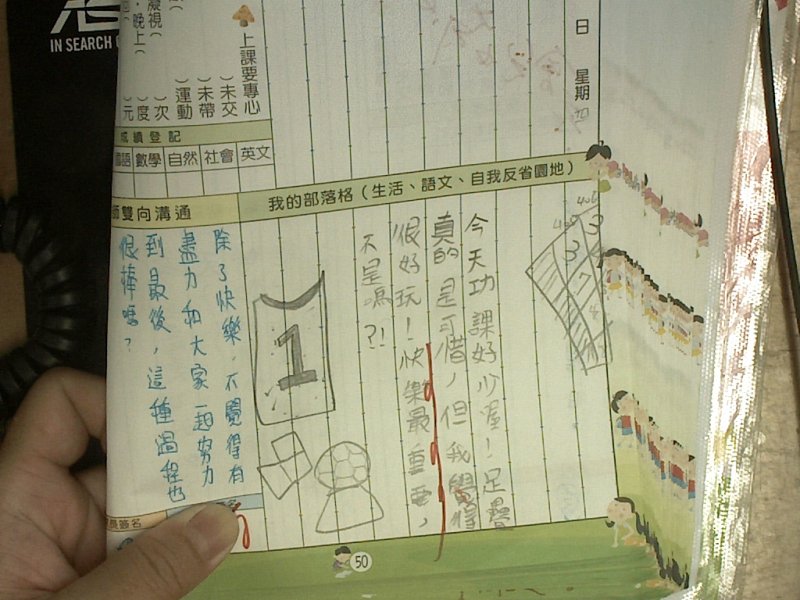 IN SEARCH
日 星期 四
上課要專心
）未交
）未帶
）運動
凝視（ ）次
晚上（ ）度
）元
成績登記
國語 數學 自然 社會 英文
我的部落格（生活、語文、自我反省園地）
今天功課好少喔！足壘
真的是可惜，但我覺得
很好玩！快樂最重要，
不是嗎？！
1
師雙向溝通
除了快樂，不覺得有
盡力和大家一起努力
到最後，這種過程也
很棒嗎？
員簽名
50